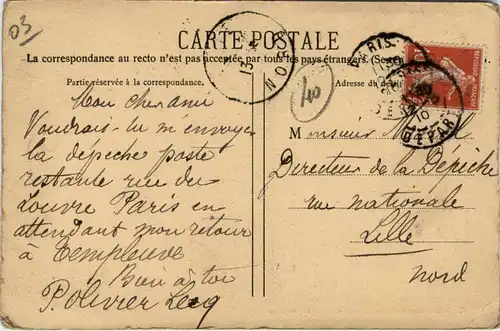 03
CARTE POSTALE
La correspondance au recto n'est pas acceptée par tous les pays étrangers. (Se
Partie réservée à la correspondance.
Adresse du
40
Mon cher ami
Voudrais-tu m'envoyer
la dépêche poste
restante rue du
Louvre Paris en
attendant mon retour
à Templeuve
Bien à toi
P. Olivier Lecq
Monsieur
Directeur de la Dépêche
rue nationale
Lille
Nord
PARIS
DEPART